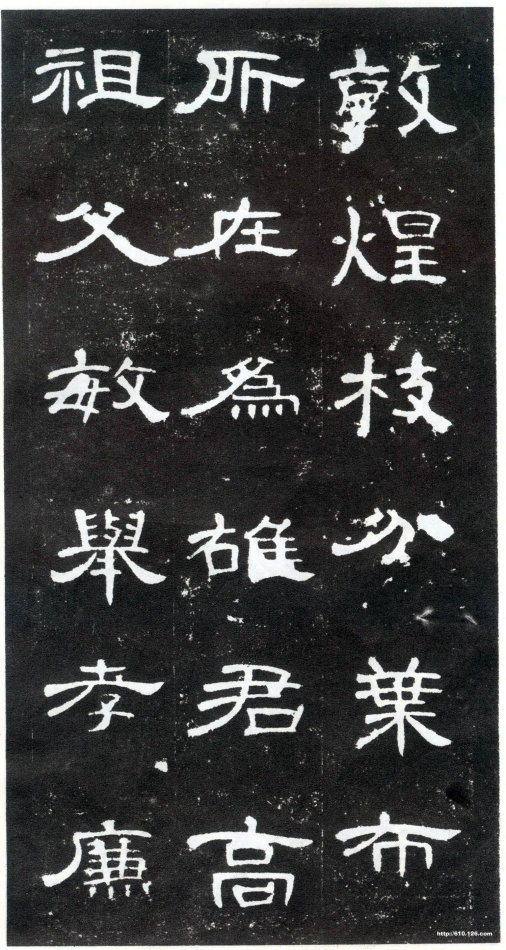 敦煌枝分葉布
所在為雄君高
祖父敏舉孝廉
http://610.126.com